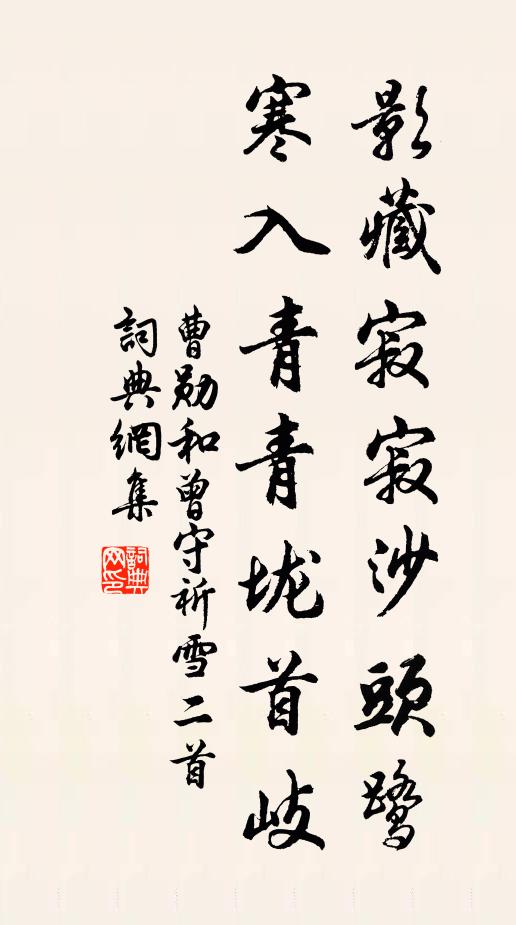 影藏寂寂沙頭鹭
寒入青青垅首歧
曹勋和曾守祈雪二首
詞典網集
詞典网印